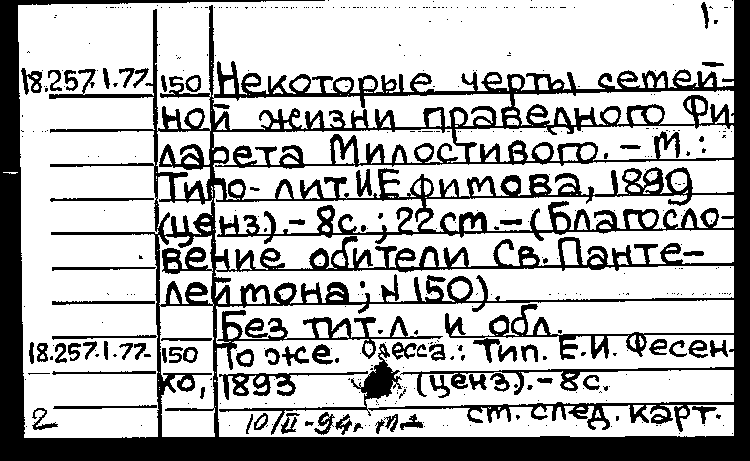 1.
18.257.1.77- 150 Некоторые черты семей-
ной жизни праведного Фи
ларета Милостивого. – М.:
Типо-лит. И.Ефимова, 1899
(ценз.). – 8с.; 22 cm. – (Благосло-
вение обители Св. Панте-
леймона; N 150).
Без тит. л. и обл.
18.257.1.77- 150 То же. Одесса.: Тип. Е.И. Фесен-
ко, 1893 (ценз.). – 8с.
2 10/II-94. см. след. карт.